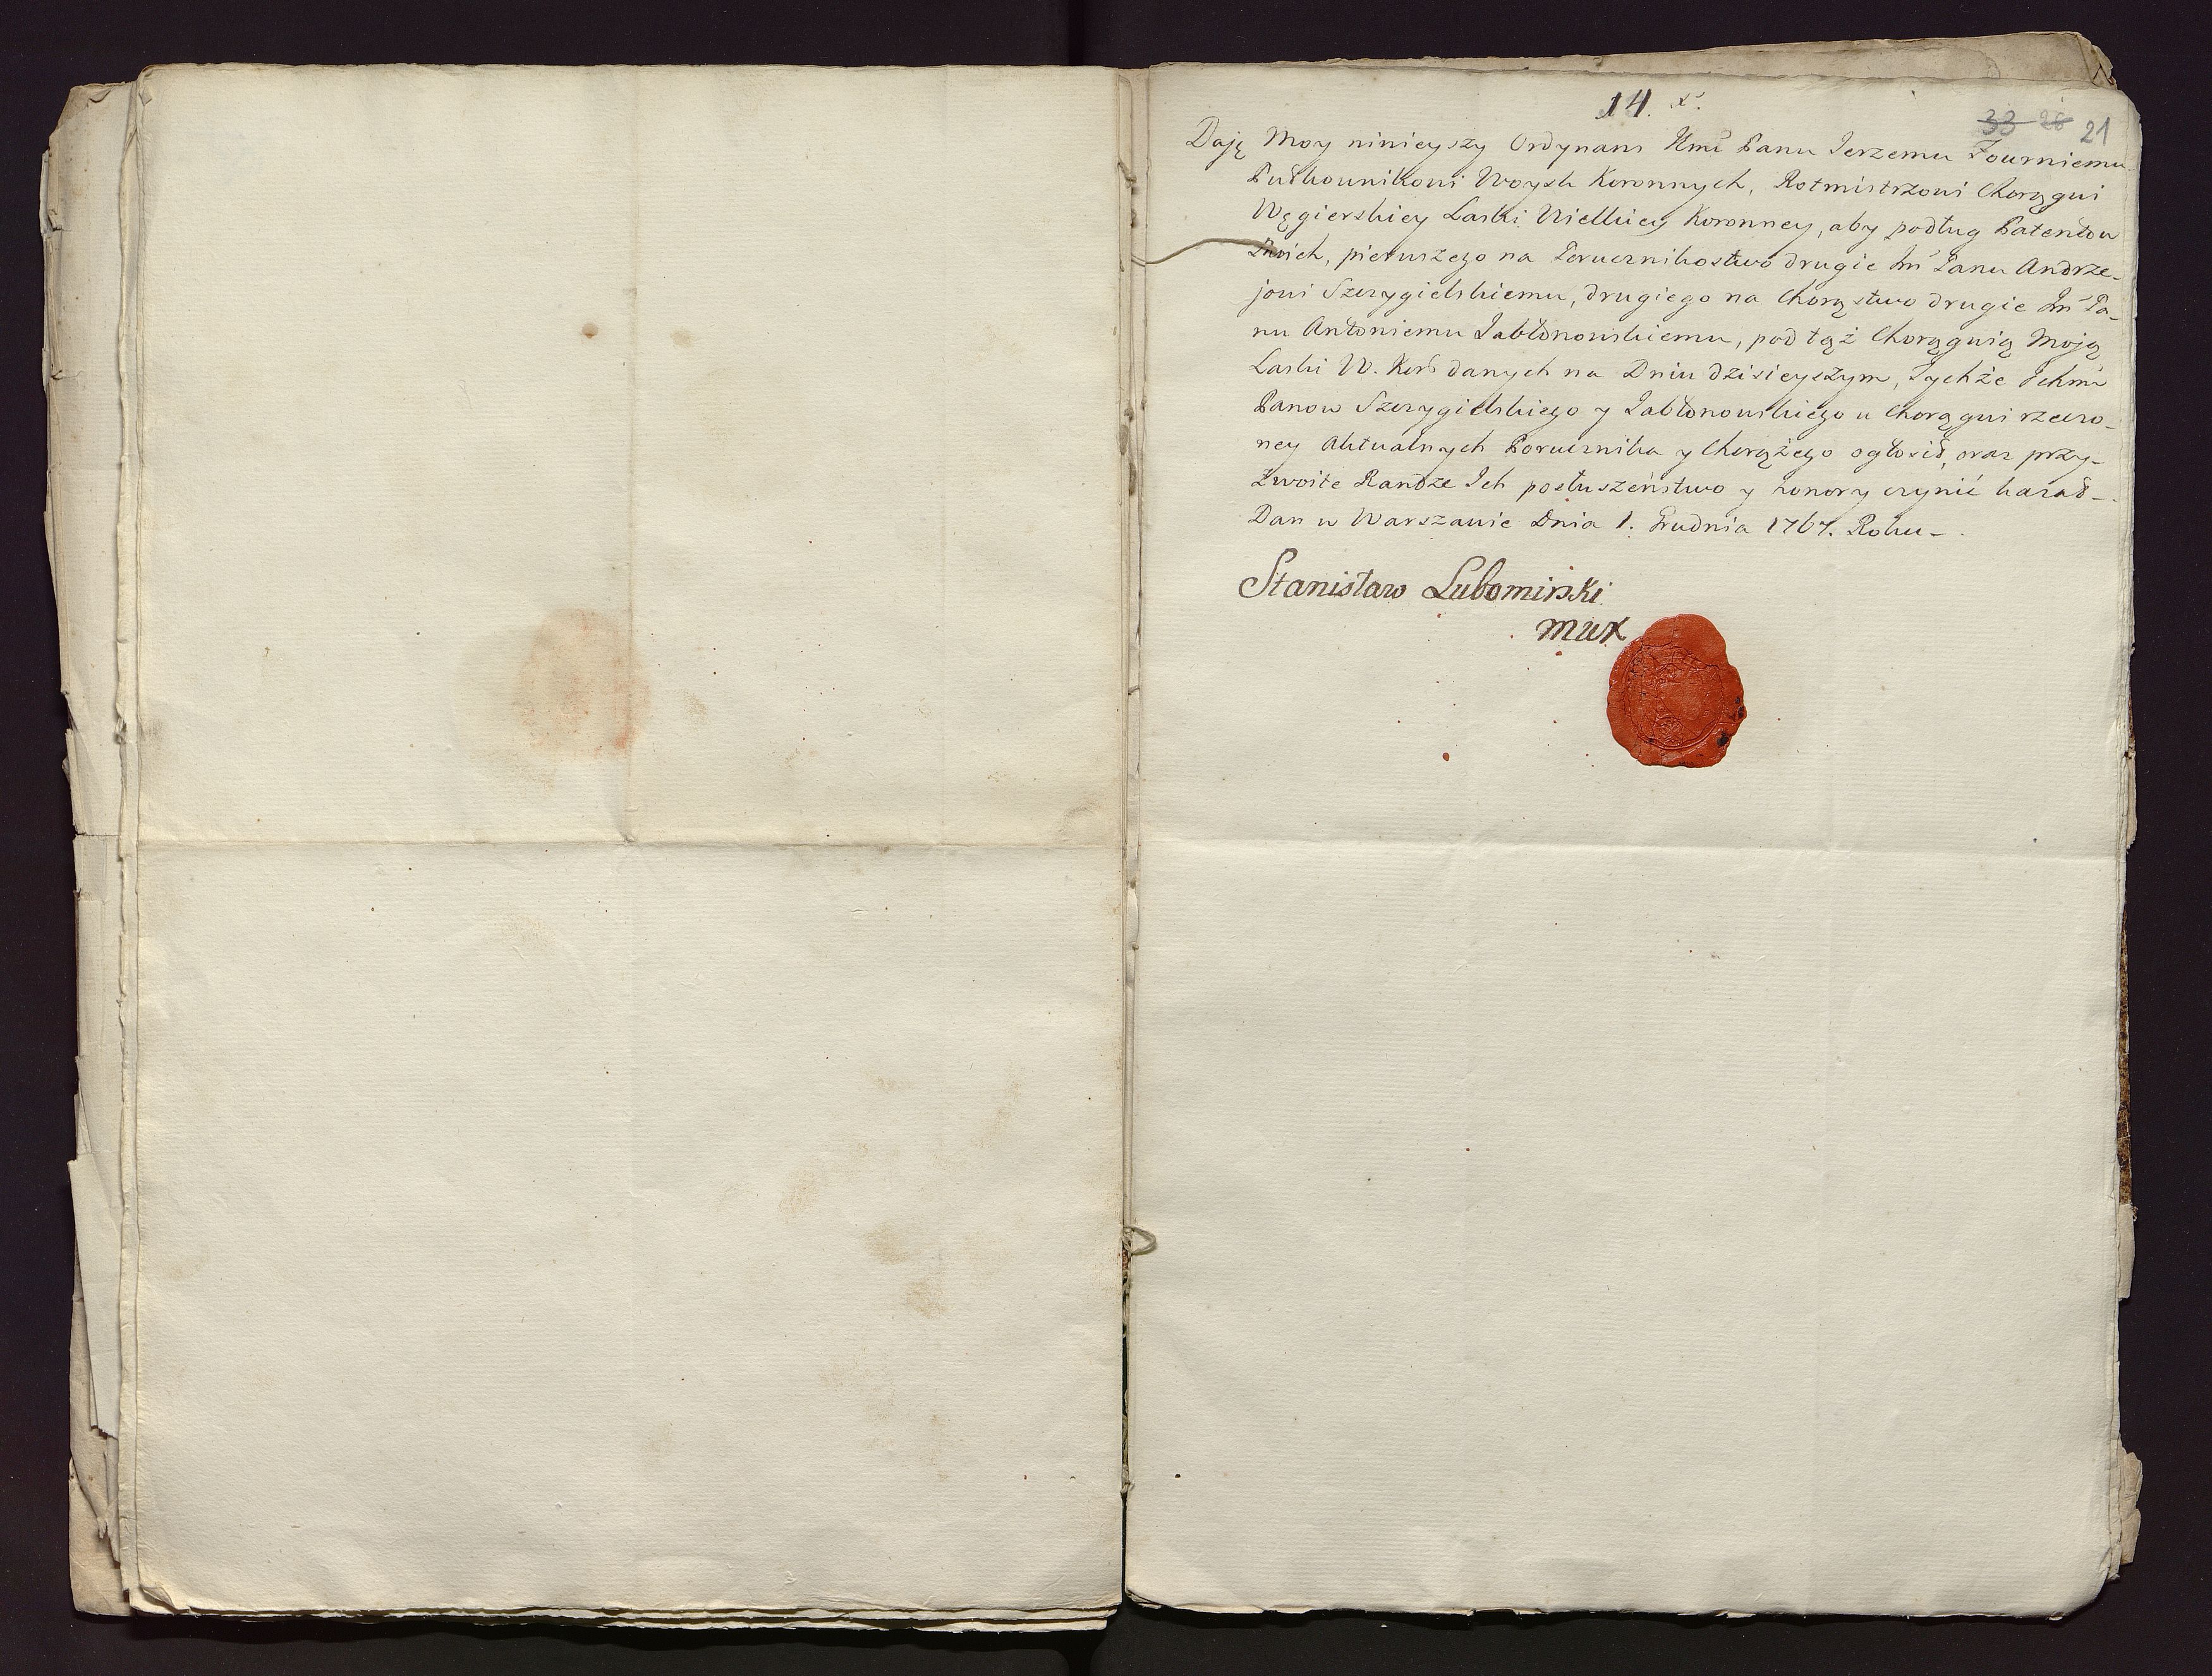 14. x.
33 28 21
Daję Moy ninieyszy Ordynans Jmć Panu Jerzemu Fourniemu
Pułkownikowi Woysk Koronnych, Rotmistrzowi Chorągwi
Węgierskiey Laski Wielkiey Koronney, aby podług Patentow
Dwóch, pierwszego na Porucznikostwo drugie Jm Panu Andrze-
jowi Szczygielskiemu, drugiego na Chorąstwo drugie Jm Pa-
nu Antoniemu Jabłonowskiemu, pod tąż Chorągwią Moją
Laski W. Kor danych na Dniu dzisieyszym, Tychże Ichmć
Panow Szczygielskiego y Jabłonowskiego u Chorągwi rzeczo-
ney Aktualnych Porucznika y Chorążego ogłosił, oraz przy-
zwoite Randze Ich posłuszeństwo y honory czynić kazał-
Dan w Warszawie Dnia 1. Grudnia 1767. Roku-
Stanisław Lubomirski
MWK